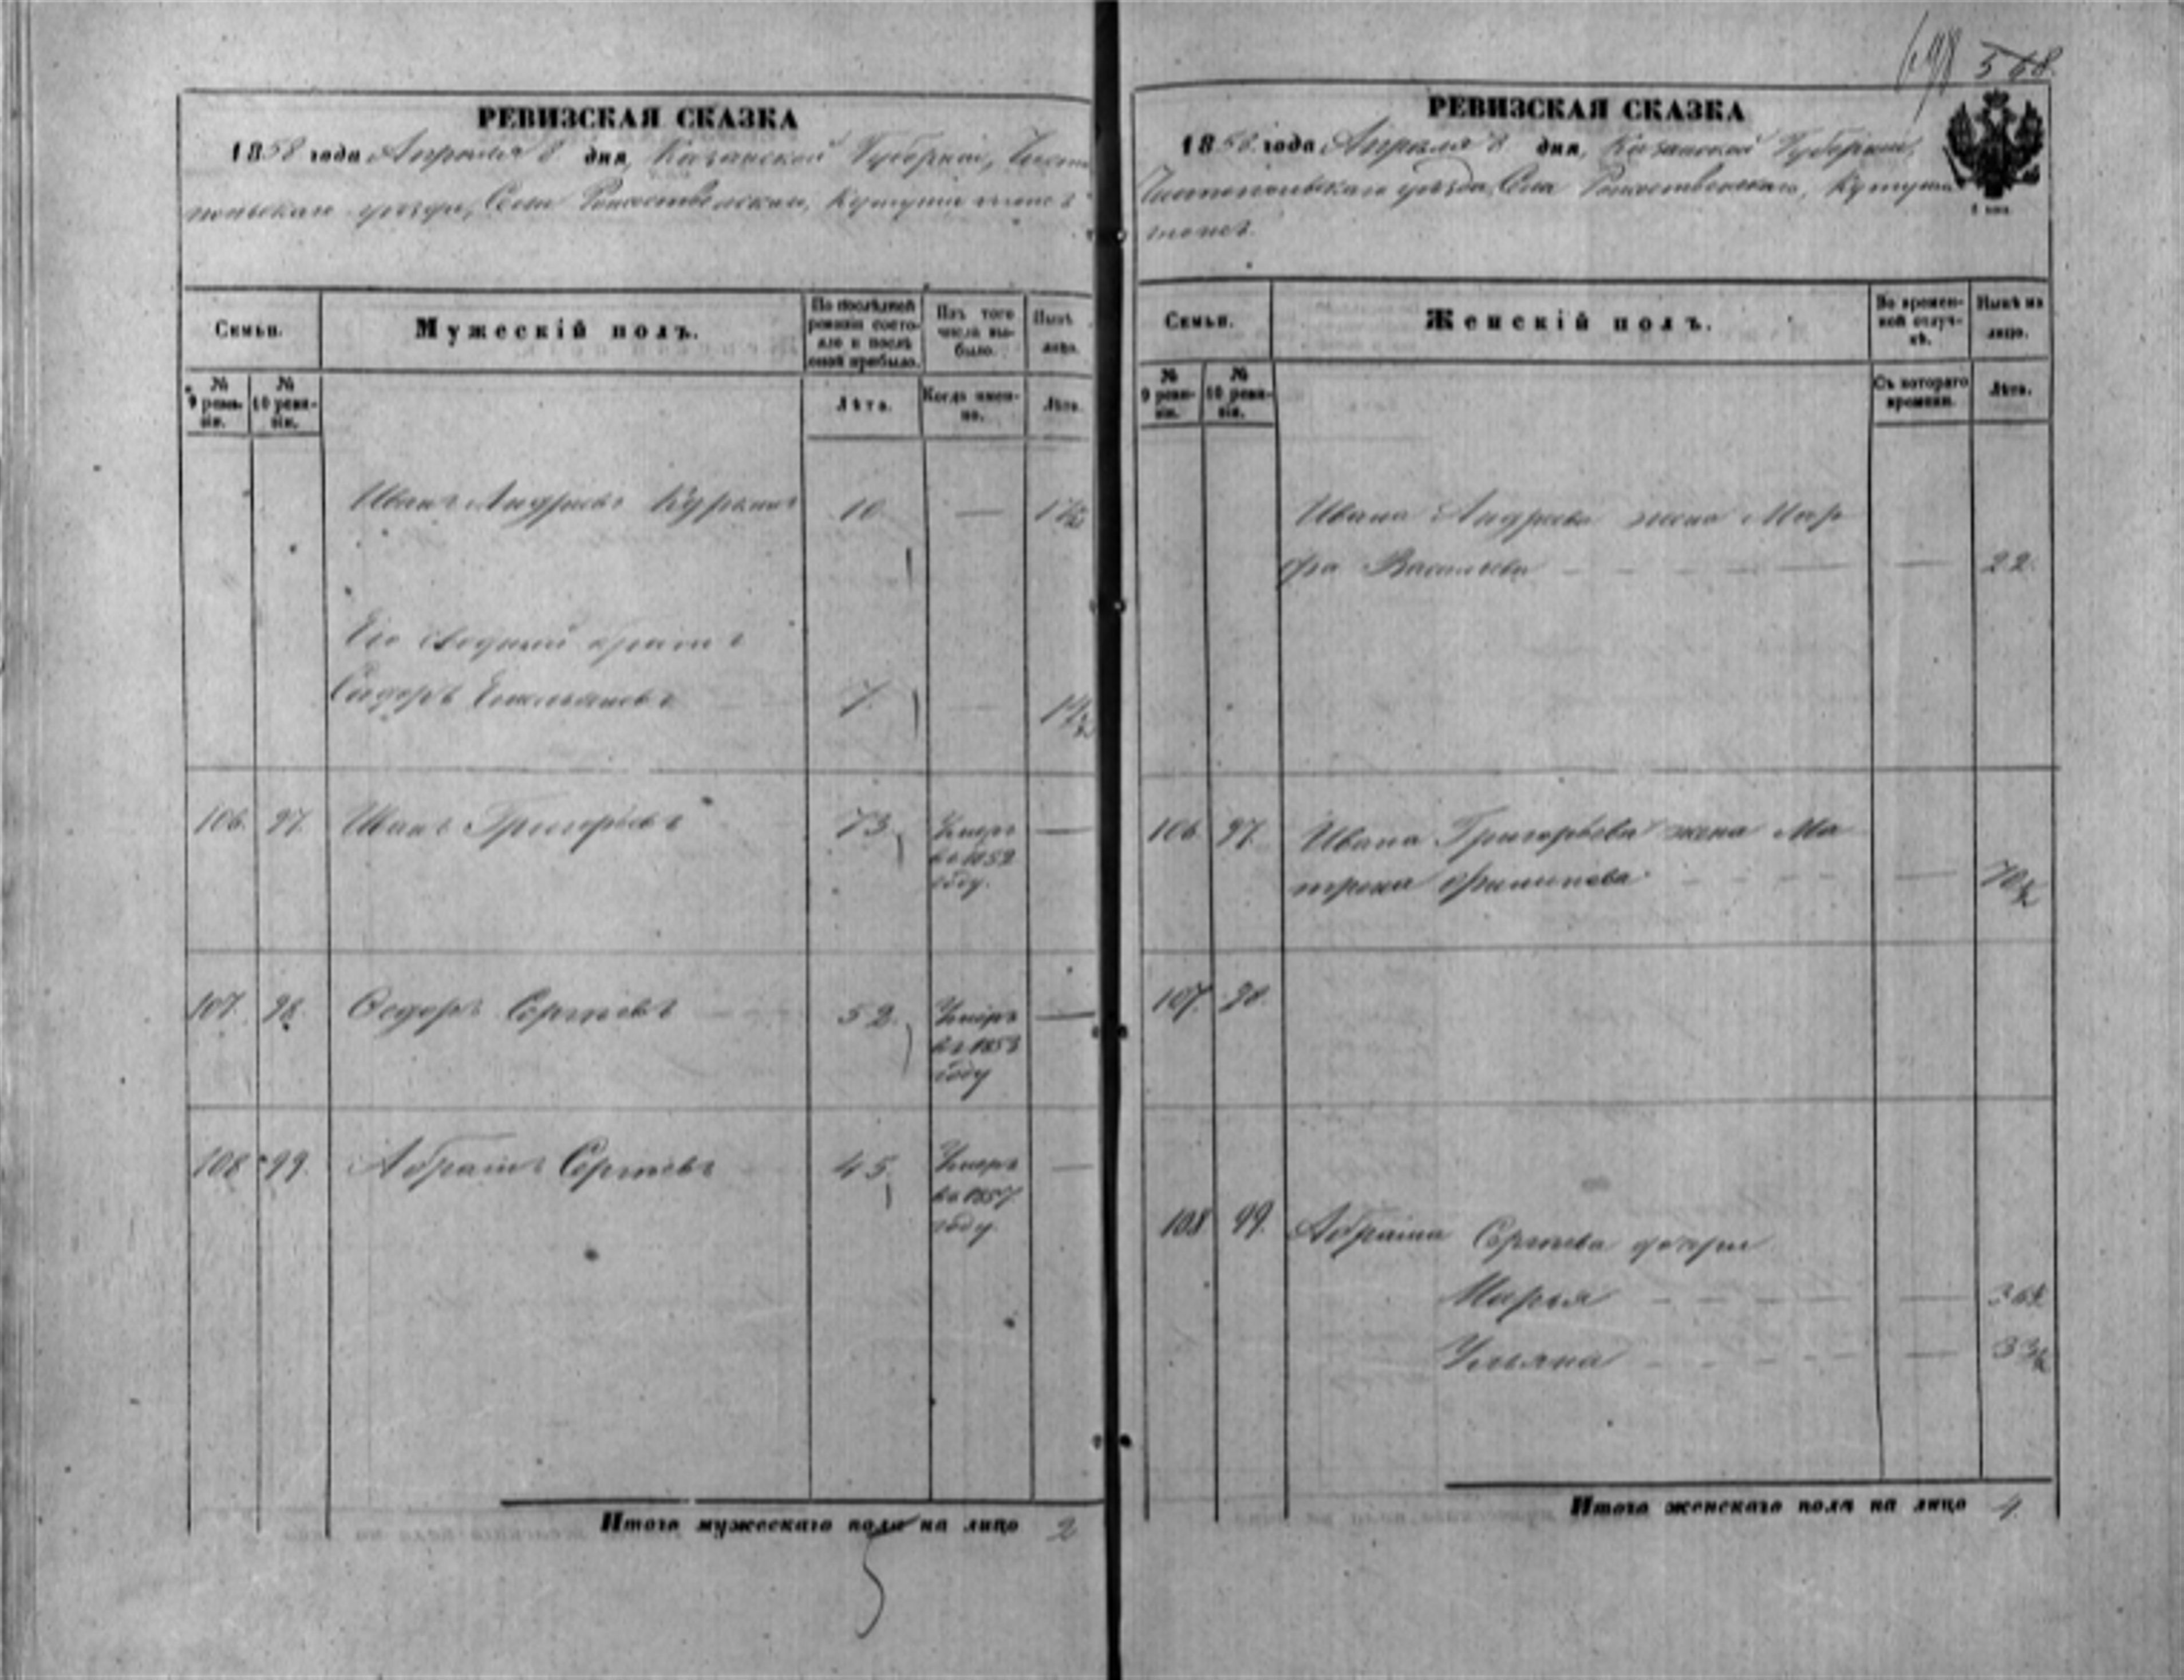 698 568.
РЕВИЗСКАЯ СКАЗКА
1858 года Апреля 8 дня, Казанской Губернiи, Чисто
польскаго уѣзда, Села Рожественскаго, Кутуша тожъ
Семьи.
Мужескiй полъ.
По послѣдней ревизiи состояло и послѣ оной прибыло.
Изъ того числа выбыло.
Нынѣ лицо.
№ 9 ревизiи.
№ 10 ревизiи.
Лѣта.
Когда именно.
Лѣта.
Иванъ Андреевъ 10 —
Его сводный братъ
Сидоръ Емельяновъ 7.
106. 97. Иванъ Григорьевъ 73. Умеръ —
въ 1852
году.
107. 98. Ѳедоръ Сергѣевъ 52. Умеръ —
въ 1853
году
108 99. Абрамъ Сергѣевъ 45. Умеръ —
въ 1857
году.
Итого мужескаго пола на лицо 2
5
РЕВИЗСКАЯ СКАЗКА
1858 года Апреля 8 дня, Казанской Губернiи,
Чистопольскаго уѣзда, Села Рожественскаго, Кутуша
тожъ.
Семьи.
Женскiй полъ.
Во временной отлучкѣ.
Нынѣ на лицо.
№ 9 ревизiи.
№ 10 ревизiи.
Съ котораго времени.
Лѣта.
Ивана Андреева жена Мар
фа Васильева — 22.
106 97. Ивана Григорьева жена Ма
трена Филипова — 70
107. 98.
108 99. Абрама Сергѣева дочери
Марья — 36
Ульяна — 33
Итого женскаго пола на лицо 4.